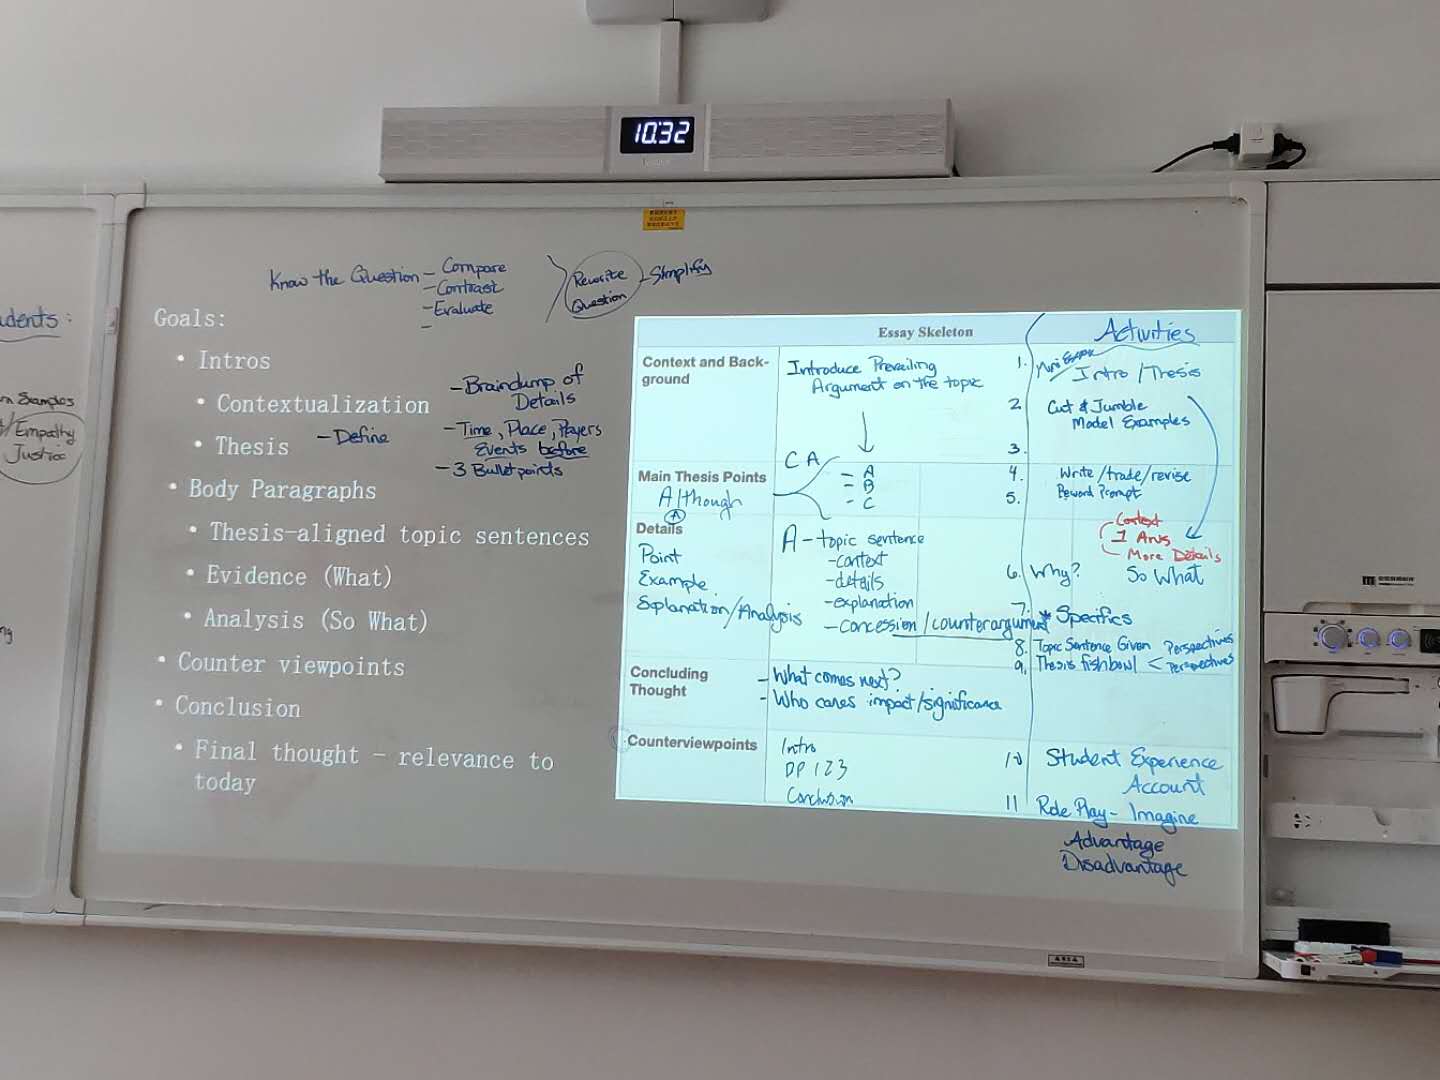 10:32
Know the Question - Compare
- Contrast
- Evaluate
-
Rewrite Question - Simplify
Goals:
• Intros
• Contextualization
- Braindump of
Details
• Thesis - Define
- Time, Place, Players
Events before
- 3 Bulletpoints
• Body Paragraphs
• Thesis-aligned topic sentences
• Evidence (What)
• Analysis (So What)
• Counter viewpoints
• Conclusion
• Final thought - relevance to
today
Essay Skeleton
Context and Back-
ground
Introduce Prevailing
Argument on the topic
Main Thesis Points
Although
A
CA
- A
- B
- C
Details
Point
Example
Explanation/Analysis
A - topic sentence
- context
- details
- explanation
- concession/counterargument
Concluding
Thought
- What comes next?
- Who cares impact/significance
Counterviewpoints
Intro
BP 123
Conclusion
Activities
1. Intro/Thesis
2. Cut & Jumble
Model Examples
3.
4. Write/trade/revise
5. Reword Prompt
Context
1 Arg
More Details
6. Why? So What
7. * Specifics
8. Topic Sentence Given Perspectives
9. Thesis fishbowl < Perspectives
10 Student Experience
Account
11 Role Play - Imagine
Advantage
Disadvantage
udents:
Examples
Empathy
Justice
ng